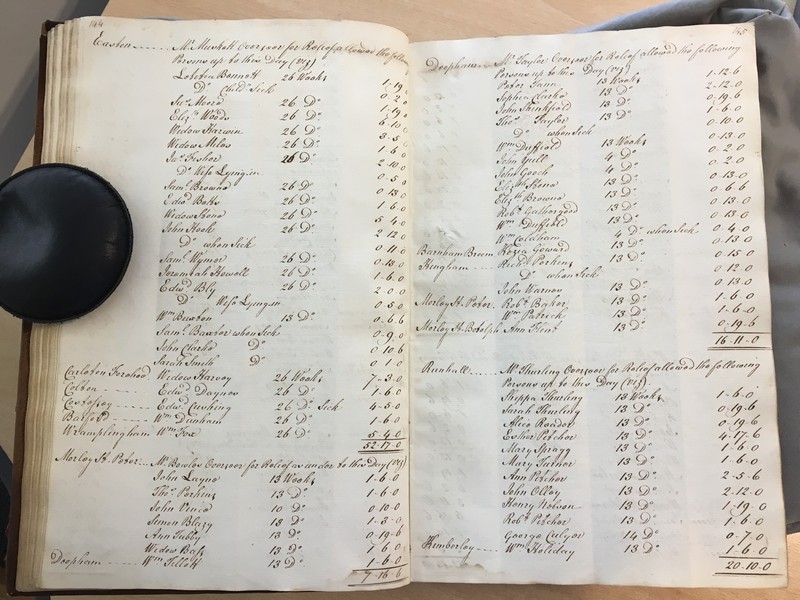 144
Easton ----- Mr. Muskett Overseer for Relief allowed the follow
Persons up to this Day (Viz)
Lobetia Bennett 26 Weeks 1-19
Do. Child Sick 0-2
Sus. Moore 26 Do. 1-19
Eliz. Woods 26 Do. 6-10
Widow Harwin 26 Do. 3-5
Widow Miles 26 Do. 1-6
Jas. Fisher 26 Do. 2-10
Do. Wife Lying in 0-5
Saml. Browne 26 Do. 0-13
Edwd. Betts 26 Do. 1-6
Widow Stone 26 Do. 5-4
John Hook 26 Do. 2-12
Do. when Sick 0-11
Saml. Wymer 26 Do. 0-13
Jeremiah Howell 26 Do. 1-6-0
Edwd. Bly 26 Do. 2-0-0
Do. Wife Lying in 0-5-0
Wm. Buxton 13 Do. 0-6-6
Saml. Baxter when Sick 0-9-0
John Clarke Do. 0-10-6
Sarah Smith Do. 0-1-0
Carleton Forehoe Widow Harvey 26 Weeks 7-3-0
Colton ---- Edwd. Daynes 26 D 1-6-0
Costessey ---- Edwd. Cushing 26 Do. Sick 4-5-0
Barford ---- Wm. Dunham 26 Do. 1-6-0
Wramplingham Wm. Fox 26 Do. 5-4-0
52-17-0
Morley St. Peter --- Mr. Bowles Overseer for Relief as under to this Day (Viz)
John Layne 13 Weeks 1-6-0
Thos. Perkins 13 Do. 1-6-0
John Vince 10 Do. 0-10-0
Simon Blazy 13 Do. 1-3-0
Ann Tubby 13 Do. 0-19-6
Widow Bass 13 Do. 1-6-0
Deopham ---- Wm. Tillott 13 Do. 1-6-0
7-16-6
145
Deopham --- Mr. Taylor Overseer for Relief allowed the following
Persons up to this Day (Viz)
Peter Fann 13 Weeks 1-12-6
Sophia Clarke 13 Do. 2-12-0
John Stinkfield 13 Do. 0-19-6
Thos. Taylor 13 Do. 1-6-0
Do. when Sick 0-10-0
Wm. Duffield 13 Weeks 0-13-0
John Yull 4 Do. 0-2-0
John Gooch 4 Do. 0-2-0
Eliz. Stone 13 Do. 0-13-0
Eliz. Browne 13 Do. 0-6-6
Robt. Gathergood 13 Do. 0-13-0
Wm. Duffield 13 Do. 0-13-0
Wm. Coldham 4 Do. when Sick 0-4-0
Barnham Broom Kezia Goward 13 Do. 0-13-0
Hingham --- Richd. Perkins 13 Do. 0-15-0
Do. when Sick 0-12-0
John Warnes 13 Do. 0-13-0
Morley St. Peter Robt. Baker 13 Do. 1-6-0
Wm. Patrick 13 Do. 1-6-0
Morley St. Botolph Ann Flint 13 Do. 0-19-6
16-11-0
Runhall --- Mr. Thurling Overseer for Relief allowed the following
Persons up to this Day (Viz)
Steppa Thurling 13 Weeks 1-6-0
Sarah Thurling 13 Do. 0-19-6
Alice Reeder 13 Do. 0-19-6
Esther Pitcher 13 Do. 4-17-6
Mary Spragg 13 Do. 1-6-0
Mary Turner 13 Do. 1-6-0
Ann Pitcher 13 Do. 2-5-6
John Olley 13 Do. 2-12-0
Henry Watson 13 Do. 1-19-0
Robt. Pitcher 13 Do. 1-6-0
George Culyer 14 Do. 0-7-0
Kimberley ---- Wm. Holiday 13 Do. 1-6-0
20-10-0